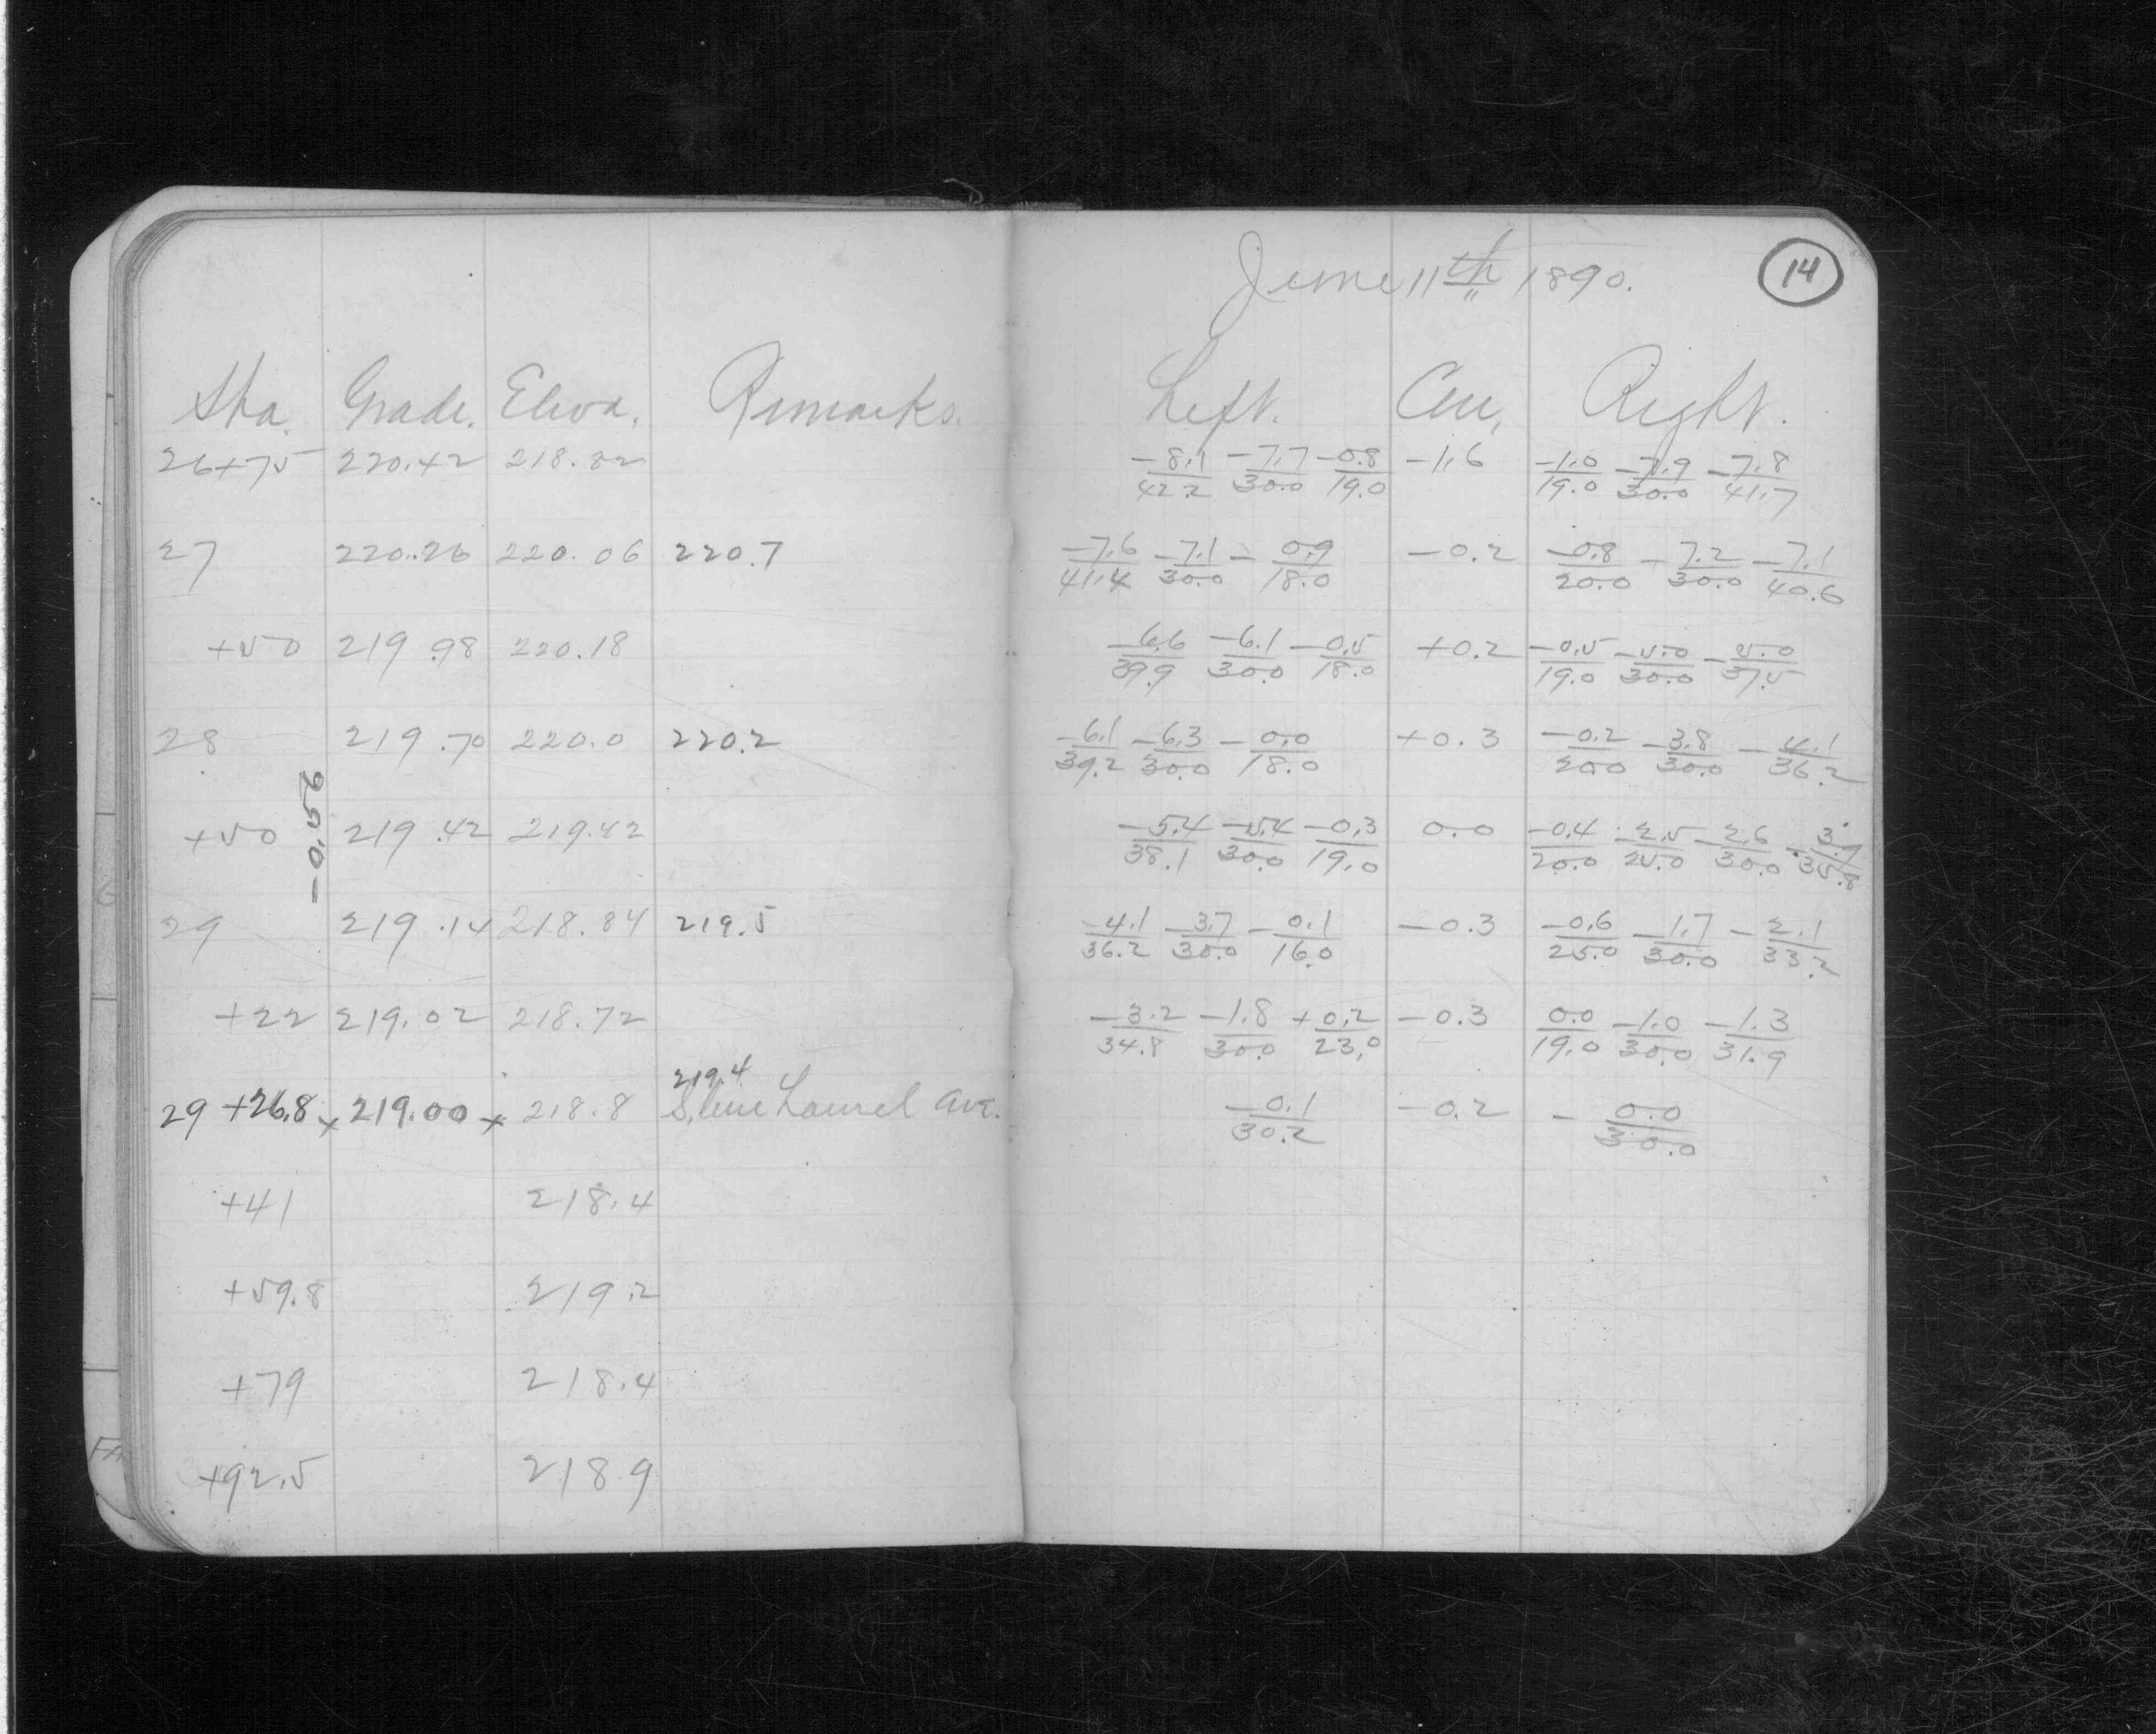 June 11th 1890.
14
Sta. Grade. Eleva. Remarks. Left. Cen. Right.
26+75 220.42 218.82 -8.1/42.2 -7.7/30.0 -0.8/19.0 -1.6 -1.0/19.0 -7.9/30.0 -7.8/41.7
27 220.26 220.06 220.7 -7.6/41.4 -7.1/30.0 -0.9/18.0 -0.2 -0.8/20.0 -7.2/30.0 -7.1/40.6
+50 219.98 220.18 -6.6/39.9 -6.1/30.0 -0.5/18.0 +0.2 -0.5/19.0 -5.0/30.0 -5.0/37.5
28 219.70 220.0 220.2 -6.1/39.2 -6.3/30.0 -0.0/18.0 +0.3 -0.2/20.0 -3.8/30.0 -4.1/36.2
-0.56
+50 219.42 219.42 -5.4/38.1 -5.4/30.0 -0.3/19.0 0.0 -0.4/20.0 -2.5/25.0 -2.6/30.0 -3.9/35.8
29 219.14 218.84 219.5 -4.1/36.2 -3.7/30.0 -0.1/16.0 -0.3 -0.6/25.0 -1.7/30.0 -2.1/33.2
+22 219.02 218.72 -3.2/34.8 -1.8/30.0 +0.2/23.0 -0.3 0.0/19.0 -1.0/30.0 -1.3/31.9
219.4
29 +26.8 x 219.00 x 218.8 S. line Laurel Ave. -0.1/30.2 -0.2 -0.0/30.0
+41 218.4
+59.8 219.2
+79 218.4
+92.5 218.9